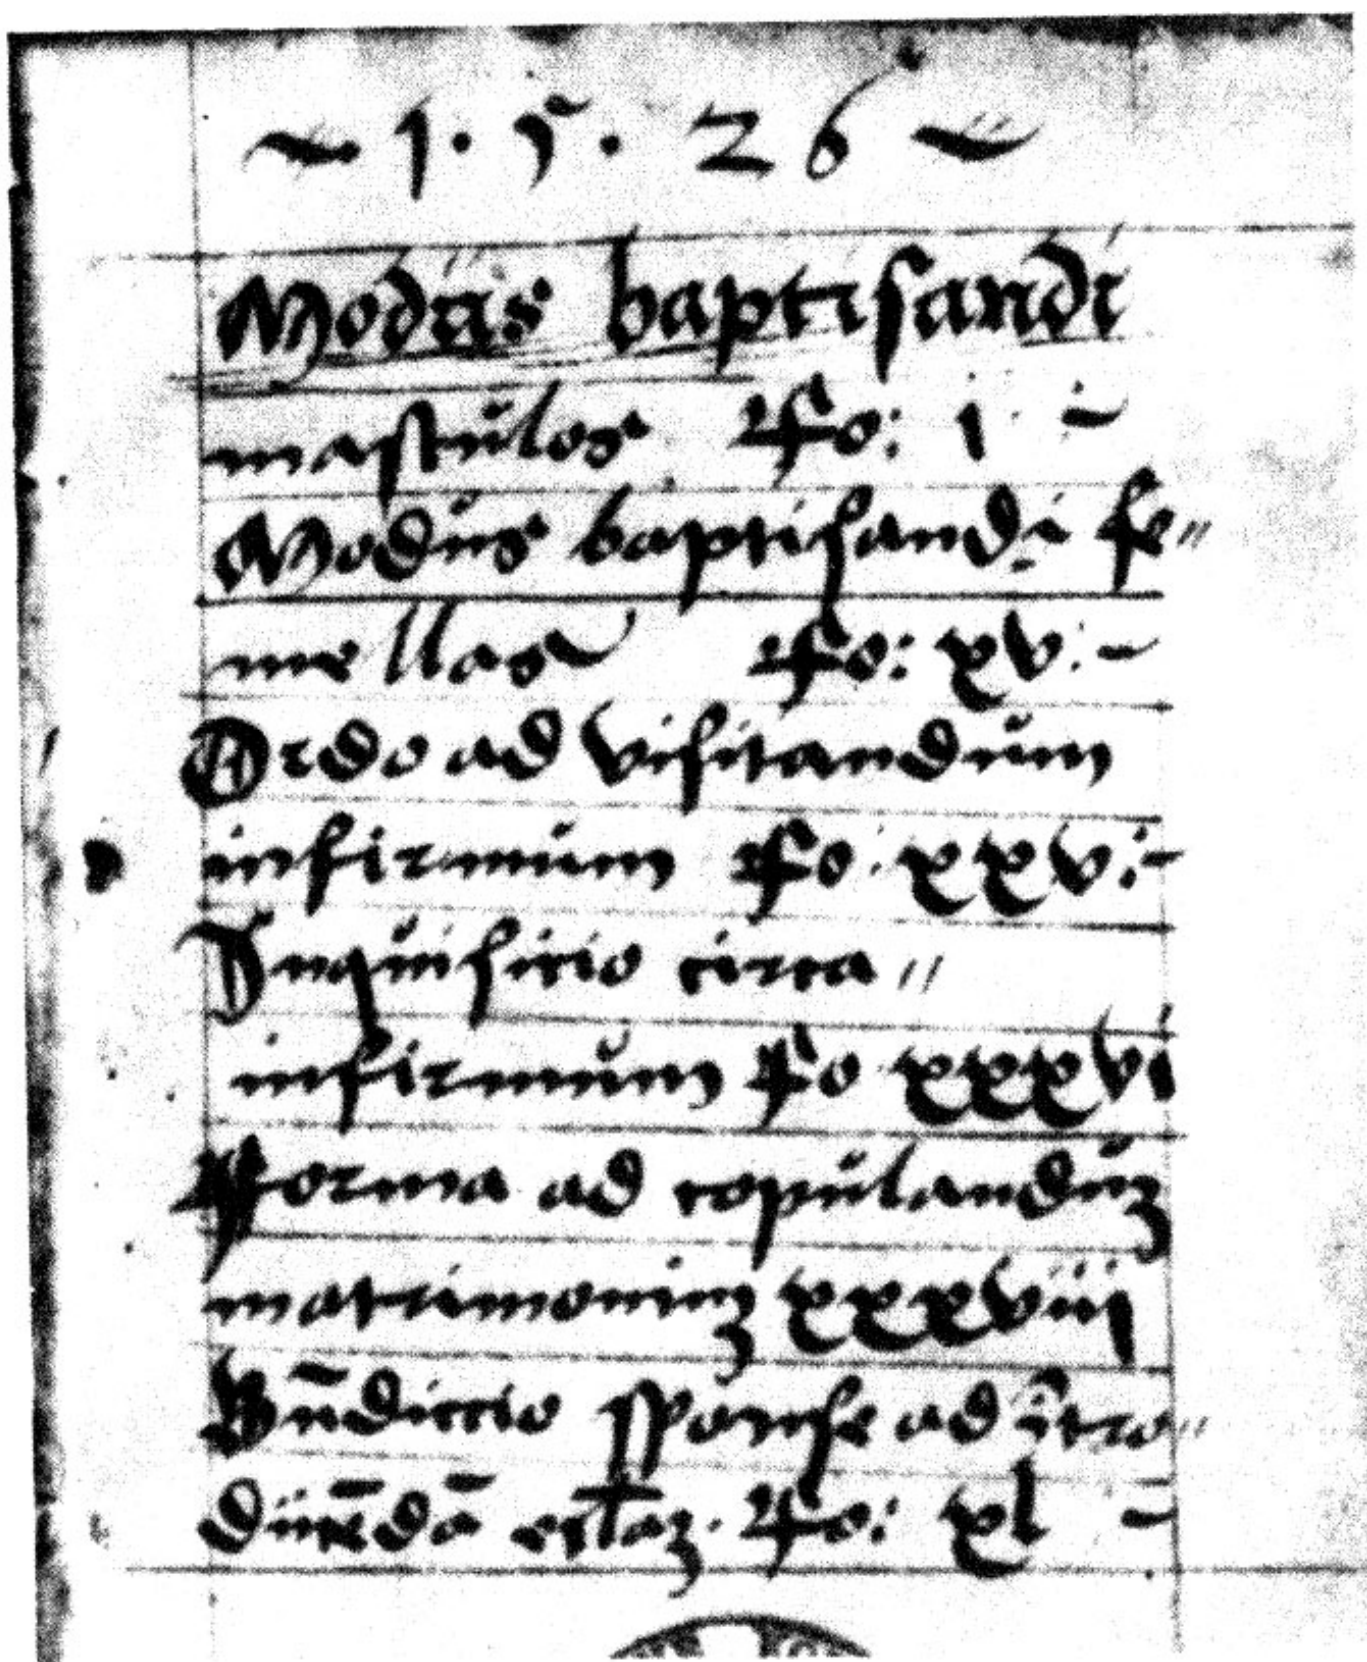 ~ 1 · 5 · 26 ~
Modus baptisandi
masculos fo: i · ~
Modus baptisandi fe〃
mellas fo: xv: ~
Ordo ad visitandum
infirmum fo: xxv: ~
Inquisitio circa 〃
infirmum fo xxxvi
Forma ad copulanduʒ
matrimoniuʒ xxxviij
Bn̄dictio sponse ad ītro〃
ducēdā eccl̄aʒ · fo: xl ~